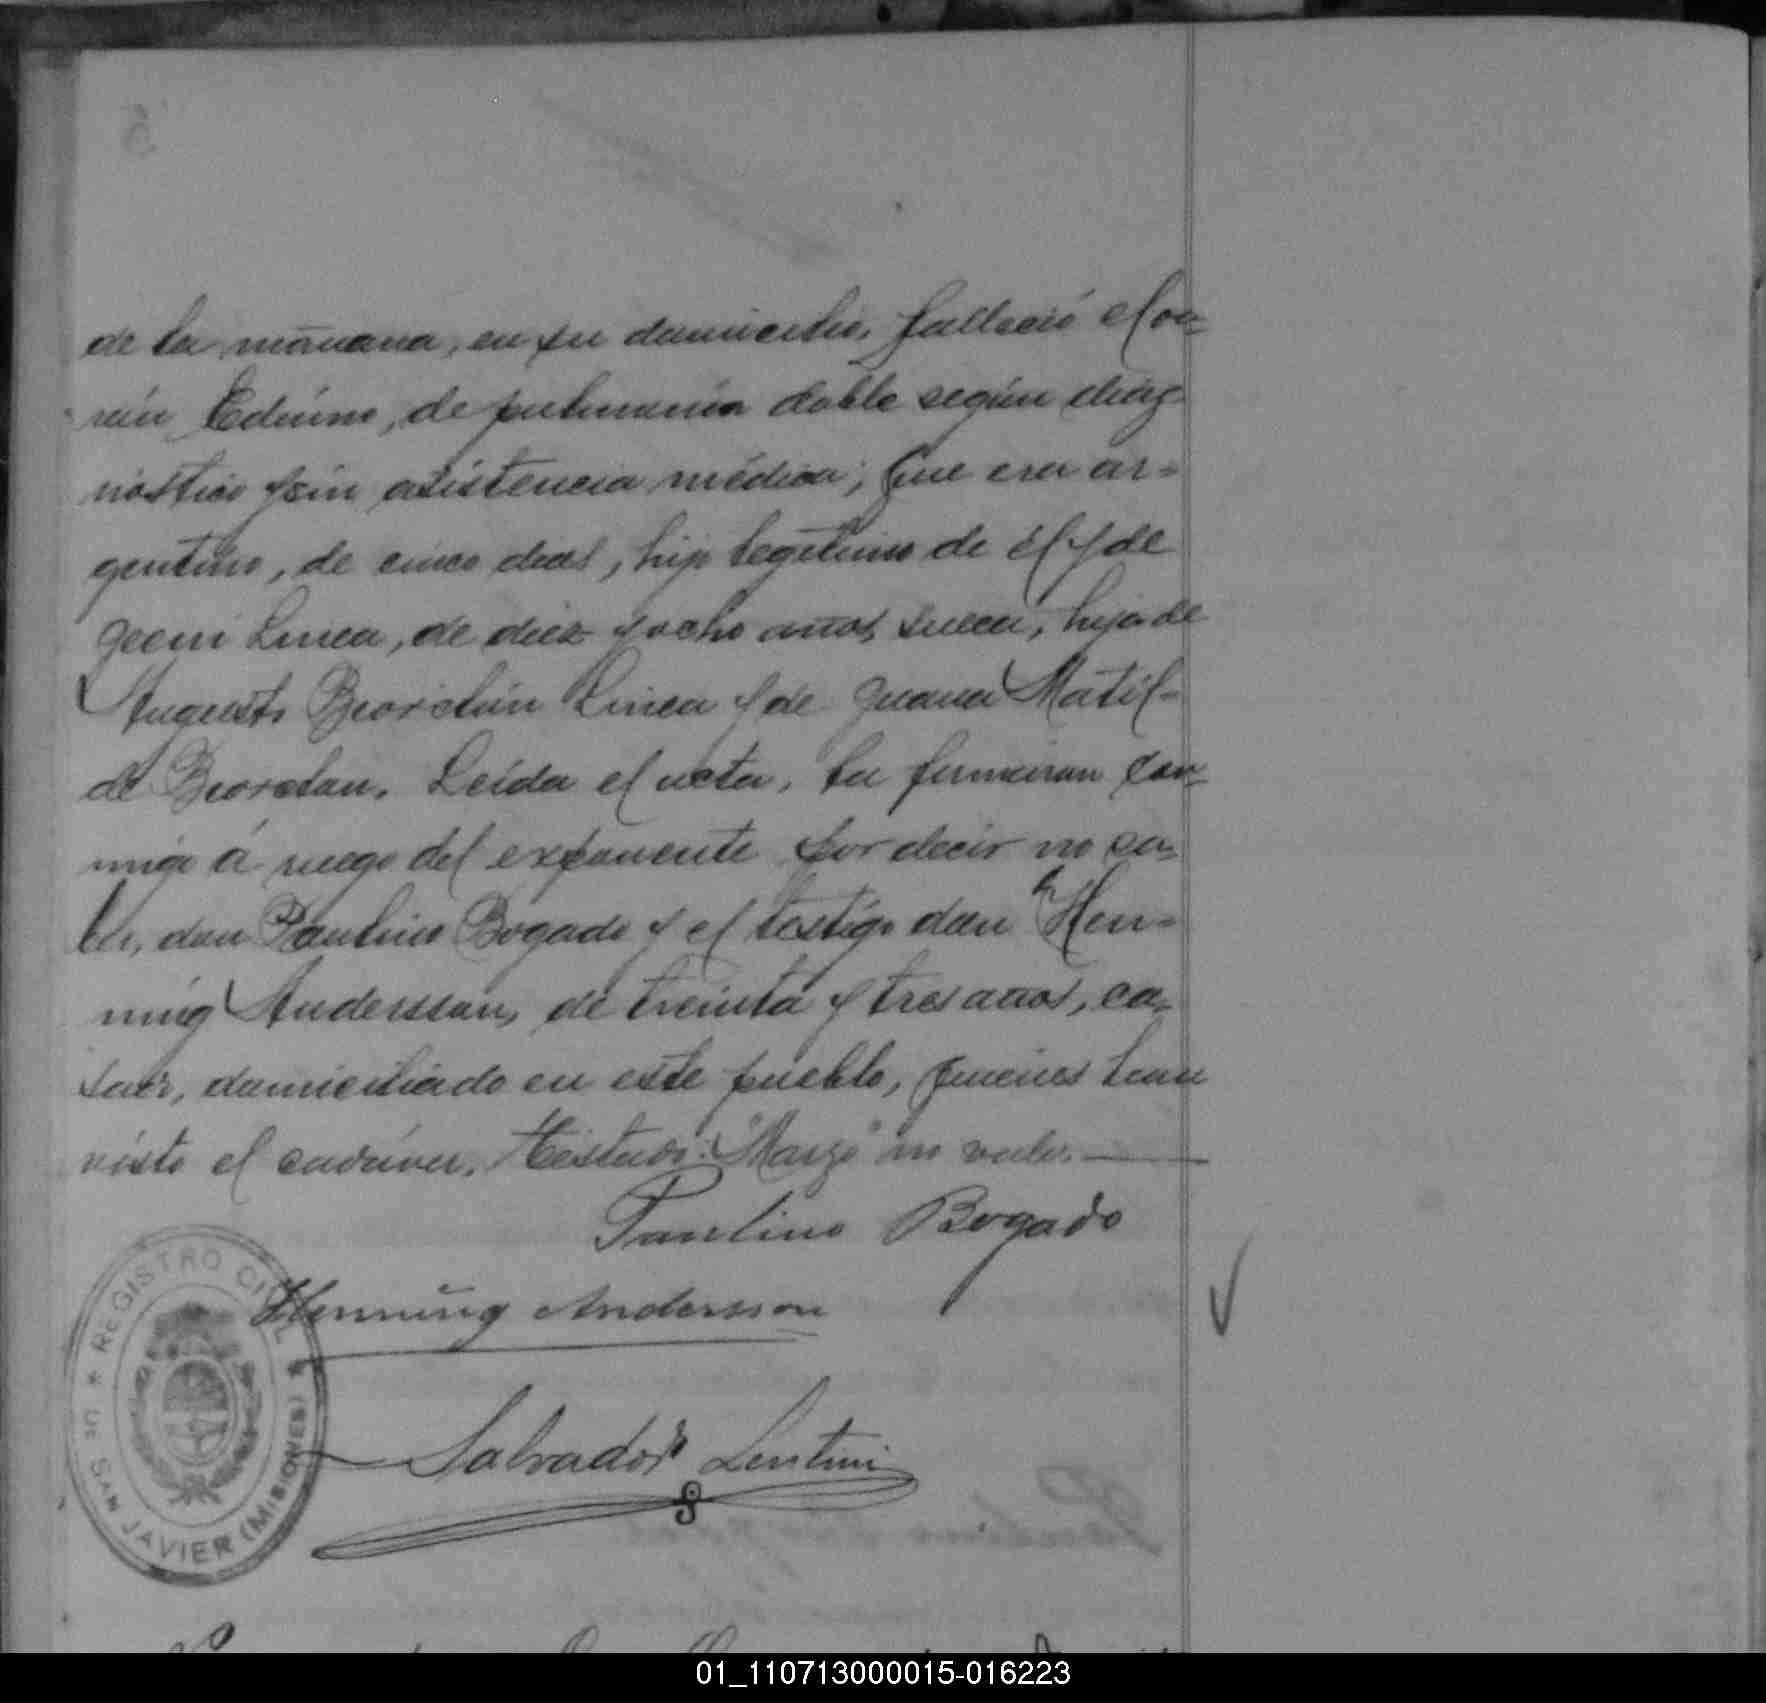 de la mañana, en su domicilio, falleció el va-
rón Edrino, de pulmonía doble según diag-
nóstico y sin asistencia médica; que era ar-
gentino, de cinco dias, hijo legítimo de él y de
Linea, de diez y ocho años, sueca, hija de
Augusto Beorclún Linea y de Juana Matil-
de Beorclan. Leída el acta, la firmaron con-
migo á ruego del exponente por decir no sa-
ber, don Paulino Bogado y el testigo don Hen-
ning Andersson, de treinta y tres años, ca-
sado, domiciliado en este pueblo, quienes han
visto el cadáver. Testado: "Marzo" no vale.—
Paulino Bogado
Henning Andersson
Salvador Lentini
★ REGISTRO CIVIL ★
DE SAN JAVIER (MISIONES)
01_110713000015-016223